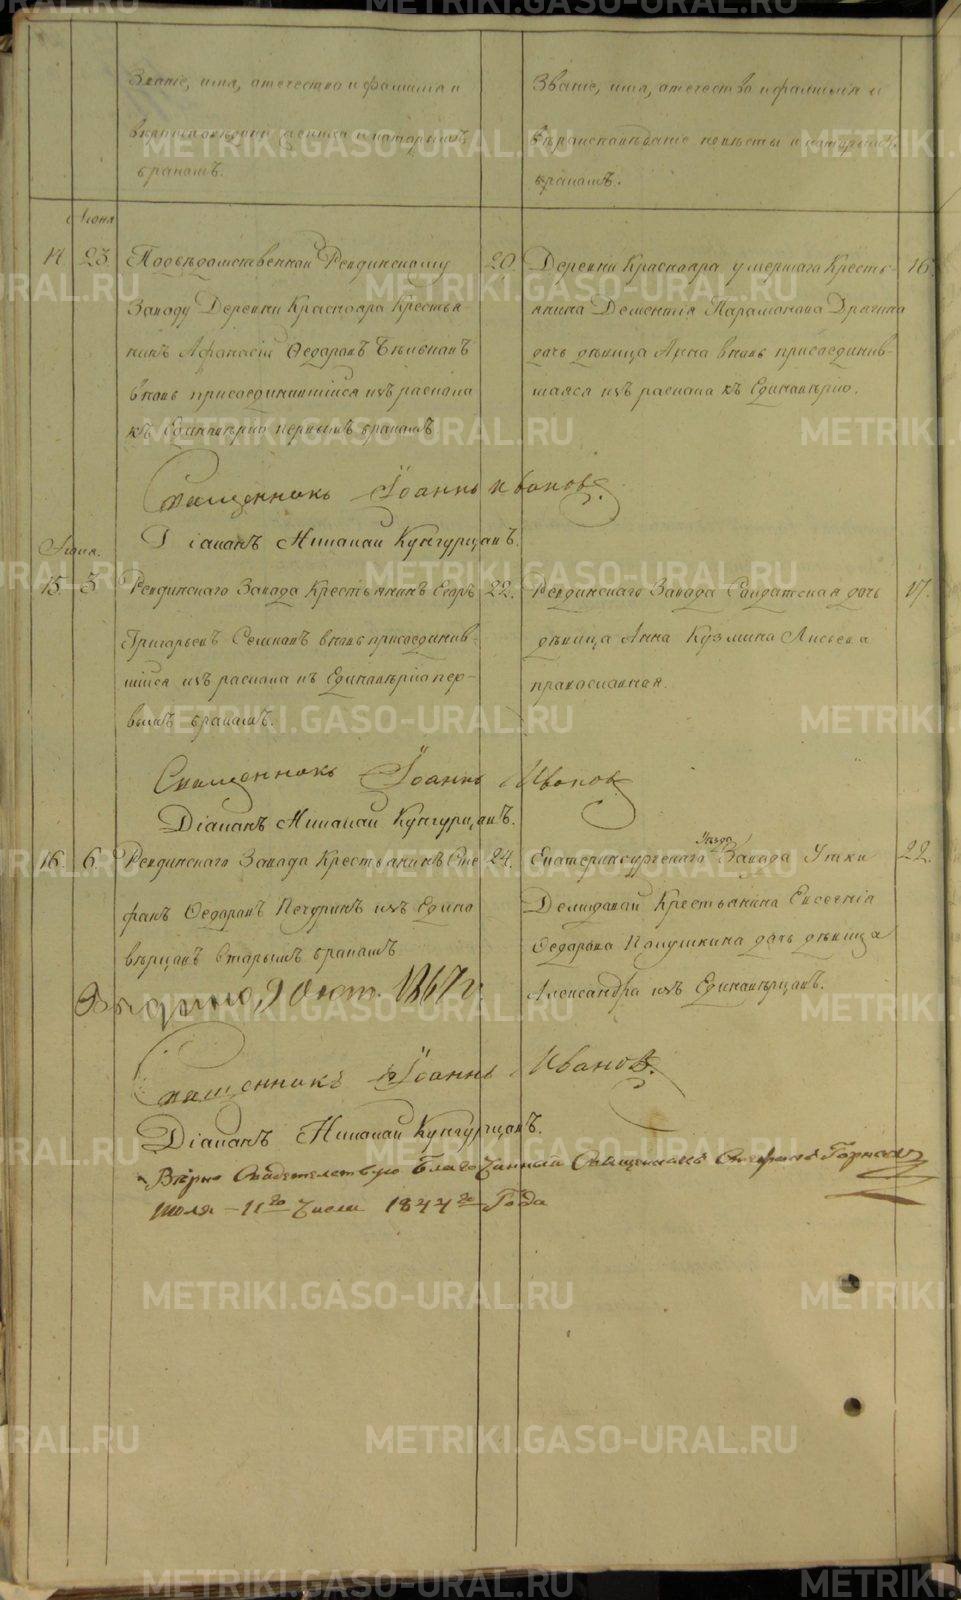 Званіе, имя, отечество и фамилія и
вѣроисповѣданіе жениха и которымъ
бракомъ.
Званіе, имя, отечество и фамилія и
вѣроисповѣданіе невѣсты и которымъ
бракомъ.
Іюня
14 23. Подвѣдомственной Ревдинскому
Заводу Деревни Краснояра Крестья-
нинъ Афанасій Ѳедоровъ
вновь присоединившійся изъ раскола
къ Единовѣрію первымъ бракомъ
20.
Деревни Краснояра умершаго Кресть-
янина Дементія Парамонова Дрягина
дочь дѣвица Анна вновь присоединив-
шаяся изъ раскола къ Единовѣрію.
16
Священникъ Іоаннъ Ивановъ.
Діаконъ Николай Кунгурцовъ.
15. 3 Ревдинскаго Завода Крестьянинъ Егоръ
Григорьевъ вновь присоединив-
шійся изъ раскола къ Единовѣрію пер-
вымъ бракомъ.
22.
Ревдинскаго Завода Солдатская дочь
дѣвица Анна Кузмина Лисьева
православная.
17.
Священникъ Іоаннъ Ивановъ
Діаконъ Николай Кунгурцовъ.
16. 6. Ревдинскаго Завода Крестьянинъ Сте
фанъ Ѳедоровъ Печуринъ изъ Едино
вѣрцовъ вторымъ бракомъ
24.
Екатеринбургскаго Уѣзда Завода Утки
Демидовой Крестьянина Евсевія
Ѳедорова дочь дѣвица
Александра изъ Единовѣрцовъ.
22.
1867 г.
Священникъ Іоаннъ Ивановъ.
Діаконъ Николай Кунгурцовъ.
Вѣрно Свидетельствую Благочинный Священникъ
Июля 11го Числа 1844го Года
METRIKI.GASO-URAL.RU